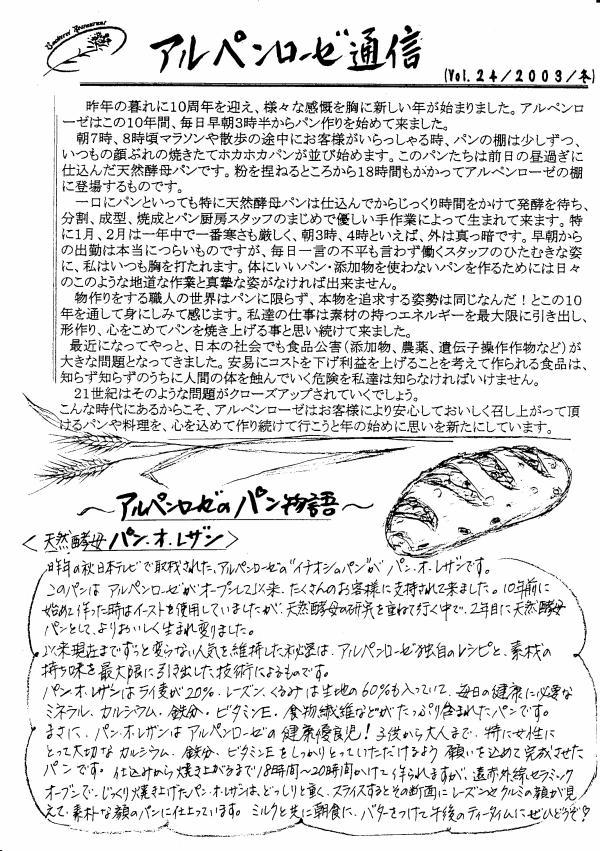 Backerei Restaurant
アルペンローゼ通信
(Vol.24/2003/冬)
昨年の暮れに10周年を迎え、様々な感慨を胸に新しい年が始まりました。アルペンロ
ーゼはこの10年間、毎日早朝3時半からパン作りを始めて来ました。
朝7時、8時頃マラソンや散歩の途中にお客様がいらっしゃる時、パンの棚は少しずつ、
いつもの顔ぶれの焼きたてホカホカパンが並び始めます。このパンたちは前日の昼過ぎに
仕込んだ天然酵母パンです。粉を捏ねるところから18時間もかかってアルペンローゼの棚
に登場するものです。
一口にパンといっても特に天然酵母パンは仕込んでからじっくり時間をかけて発酵を待ち、
分割、成型、焼成とパン厨房スタッフのまじめで優しい手作業によって生まれて来ます。特
に1月、2月は一年中で一番寒さも厳しく、朝3時、4時といえば、外は真っ暗です。早朝から
の出勤は本当につらいものですが、毎日一言の不平も言わず働くスタッフのひたむきな姿
に、私はいつも胸を打たれます。体にいいパン・添加物を使わないパンを作るためには日々
のこのような地道な作業と真摯な姿がなければ出来ません。
物作りをする職人の世界はパンに限らず、本物を追求する姿勢は同じなんだ!とこの10
年を通して身にしみて感じます。私達の仕事は素材の持つエネルギーを最大限に引き出し、
形作り、心をこめてパンを焼き上げる事と思い続けて来ました。
最近になってやっと、日本の社会でも食品公害(添加物、農薬、遺伝子操作作物など)が
大きな問題となってきました。安易にコストを下げ利益を上げることを考えて作られる食品は、
知らず知らずのうちに人間の体を蝕んでいく危険を私達は知らなければいけません。
21世紀はそのような問題がクローズアップされていくでしょう。
こんな時代にあるからこそ、アルペンローゼはお客様により安心しておいしく召し上がって頂
けるパンや料理を、心を込めて作り続けて行こうと年の始めに思いを新たにしています。
〜アルペンローゼのパン物語〜
<天然酵母 パン・オ・レザン>
昨年の秋、日本テレビで取材された、アルペンローゼの"イチオシのパン"が パン・オ・レザンです。
このパンは アルペンローゼがオープンして以来、たくさんのお客様に支持されて来ました。10年前に
始めて作った時はイーストを使用していましたが、天然酵母の研究を重ねて行く中で、2年目に天然酵母
パンとして、よりおいしく生まれ変りました。
以来現在までずっと変らない人気を維持した秘密は、アルペンローゼ独自のレシピと、素材の
持ち味を最大限に引き出した技術によるものです。
パン・オ・レザンはライ麦が20%、レーズン、くるみは生地の60%も入っていて、毎日の健康に必要な
ミネラル、カルシウム、鉄分、ビタミンE、食物繊維などがたっぷり含まれたパンです。
まさに、パン・オ・レザンは アルペンローゼの 健康優良児! 子供から大人まで、特に女性に
とって大切な カルシウム、鉄分、ビタミンEをしっかりとっていただけるよう 願いを込めて完成させた
パンです。仕込みから焼き上がるまで18時間〜20時間かけて作られますが、遠赤外線セラミック
オーブンで、じっくり焼き上げたパン・オ・レザンは、どっしりと重く、スライスするとその断面に レーズンとクルミの顔が見
えて、素朴な顔のパンに仕上っています。ミルクと共に朝食に、バターをつけて午後のティータイムにぜひどうぞ!